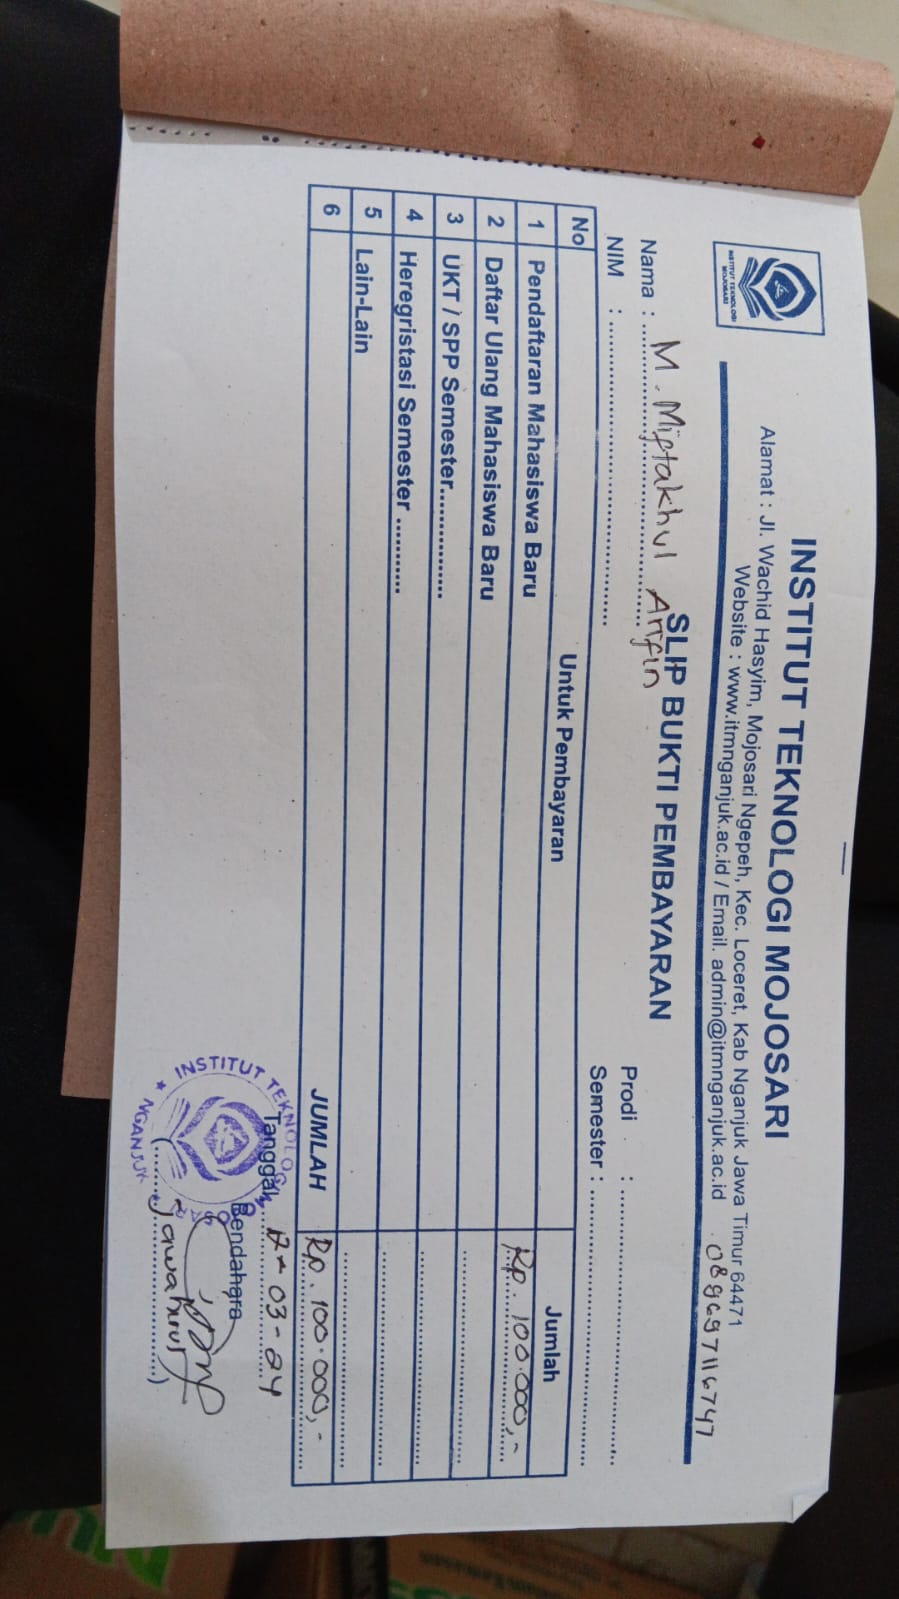 INSTITUT TEKNOLOGI MOJOSARI
INSTITUT TEKNOLOGI MOJOSARI
Alamat : Jl. Wachid Hasyim, Mojosari Ngepeh, Kec. Loceret, Kab Nganjuk Jawa Timur 64471
Website : www.itmnganjuk.ac.id / Email. admin@itmnganjuk.ac.id
SLIP BUKTI PEMBAYARAN
Nama : M. Miftakhul Arifin Prodi :
NIM : Semester :
No Untuk Pembayaran Jumlah
1 Pendaftaran Mahasiswa Baru Rp. 100.000,-
2 Daftar Ulang Mahasiswa Baru
3 UKT / SPP Semester..............
4 Heregristasi Semester ...........
5 Lain-Lain
6
JUMLAH Rp. 100.000,-
Tanggal 03-24
Bendahara
INSTITUT TEKNOLOGI
NGANJUK